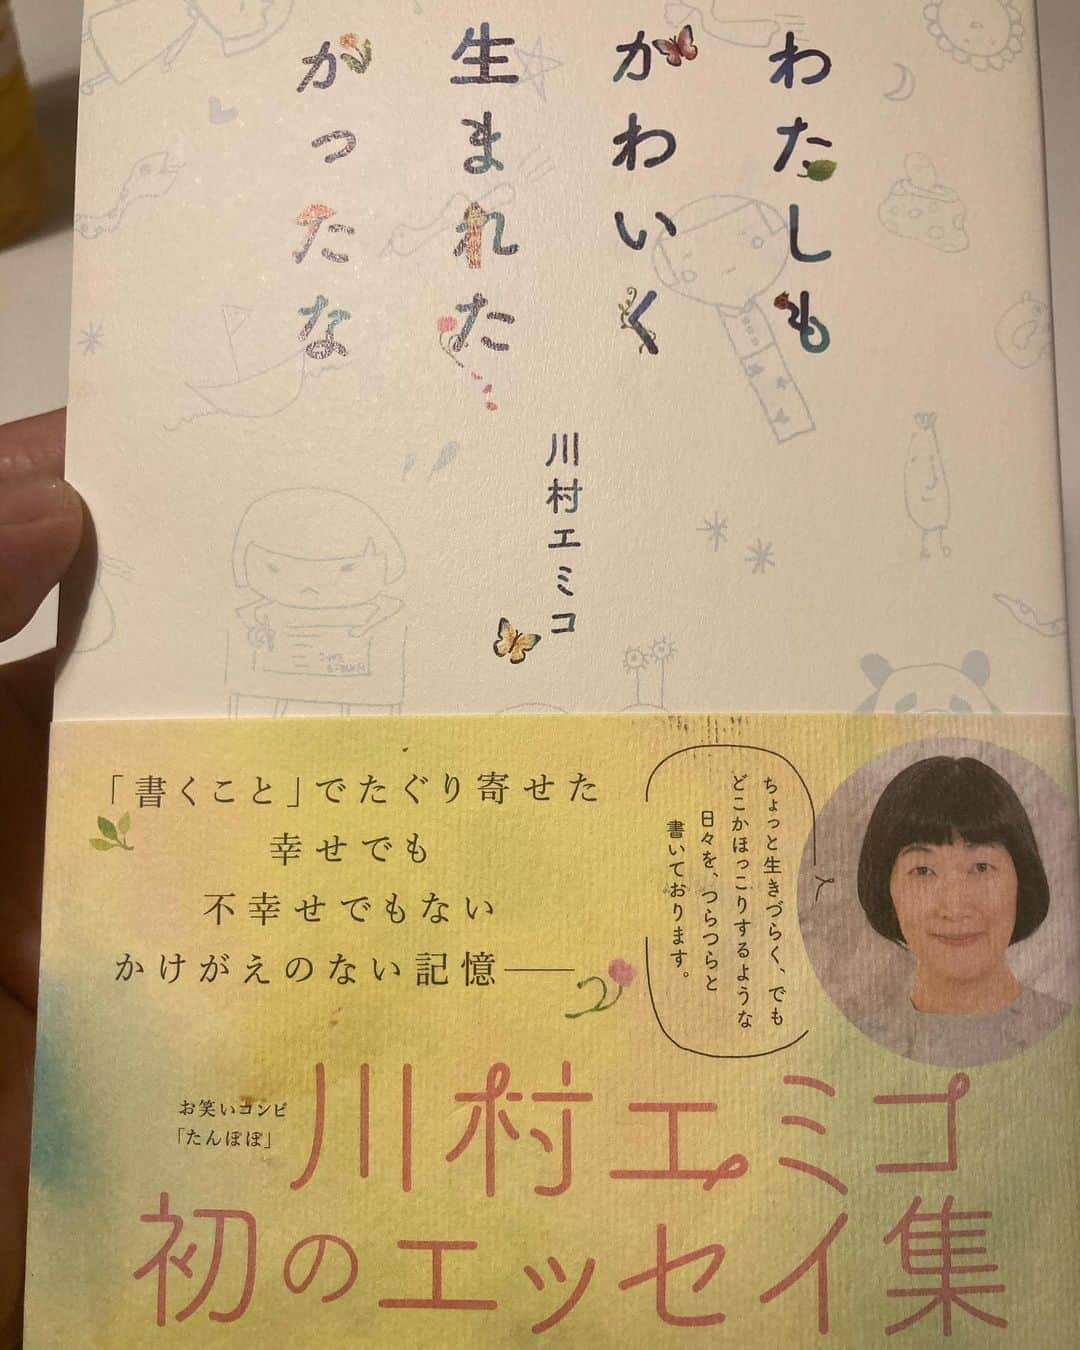 わたしも
かわいく
生まれた
かったな
川村エミコ
「書くこと」でたぐり寄せた
幸せでも
不幸せでもない
かけがえのない記憶――
ちょっと生きづらく、でも
どこかほっこりするような
日々を、つらつらと
書いております。
お笑いコンビ
「たんぽぽ」
川村エミコ
初のエッセイ集